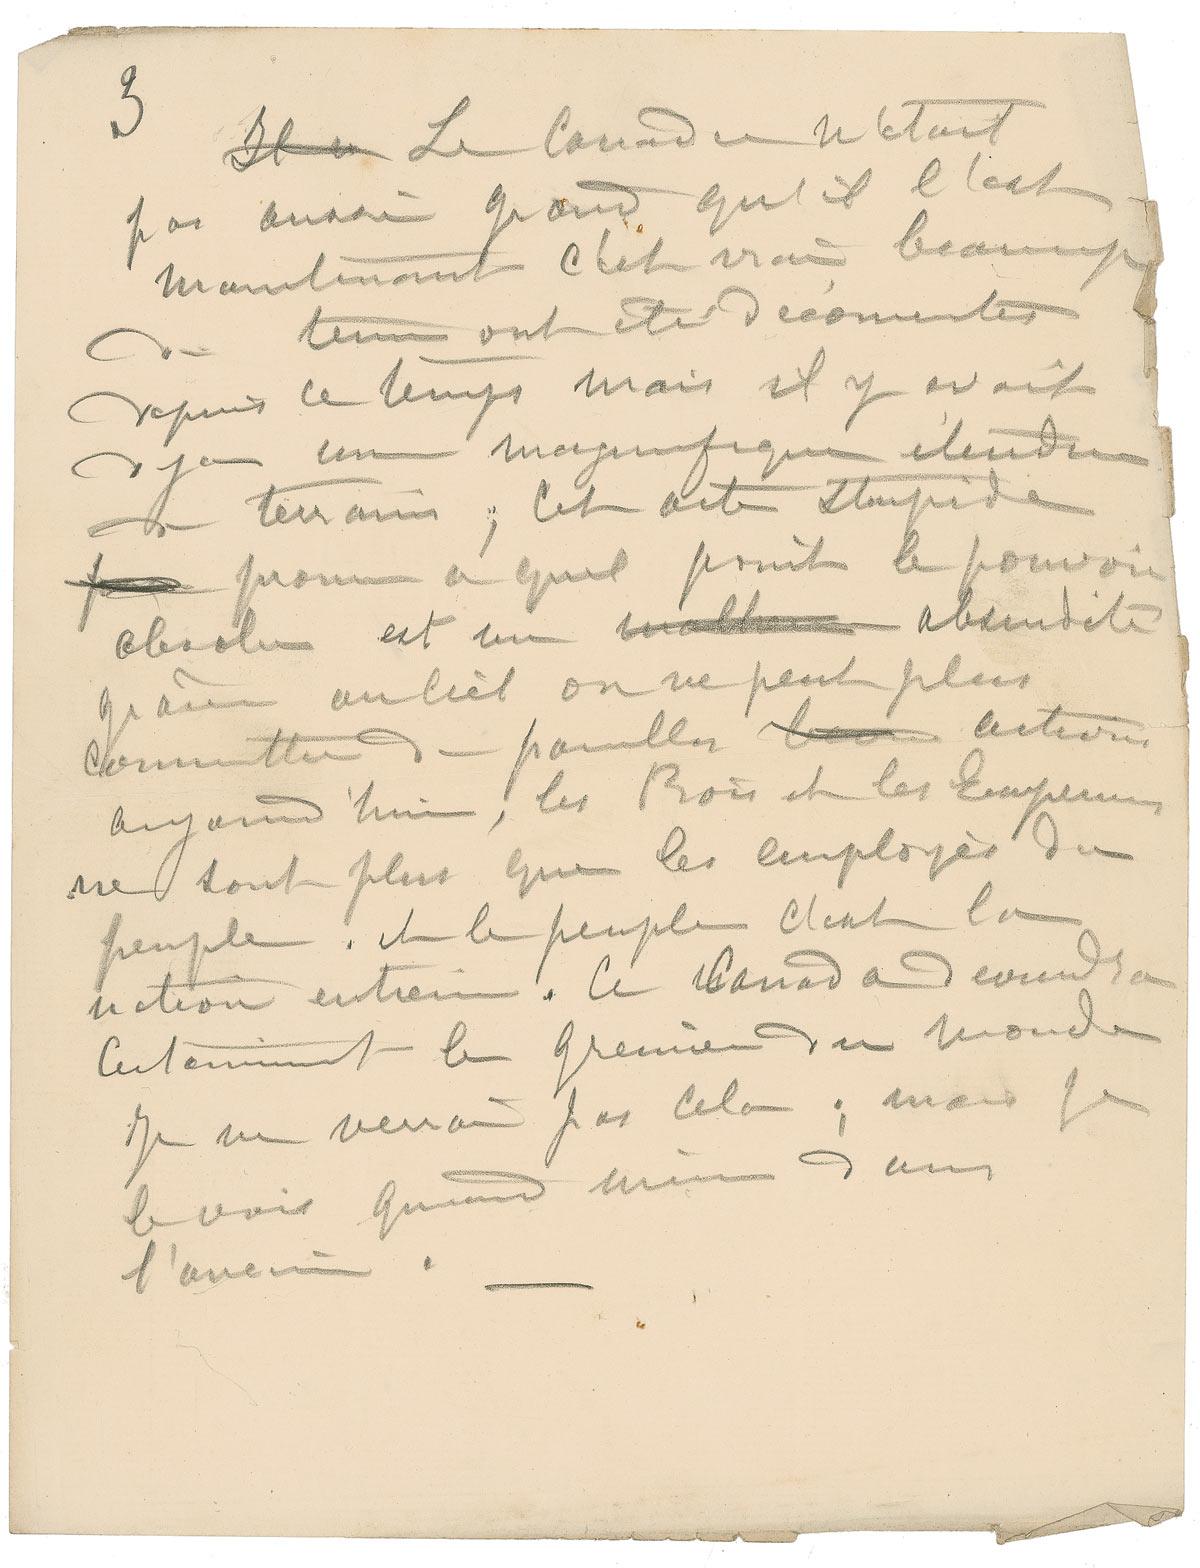 3
Il n Le Canada n'était
pas aussi grand qu'il l'est
maintenant c'est vrai beaucoup
de terres ont été découvertes
depuis ce temps mais il y avait
deja une magnifique étendue
de terrain ; cet acte stupide
prouve a quel point le pouvoir
absolu est une absurdité
grace au ciel on ne peut plus
commettre de pareilles actions
aujourd'hui, les Rois et les Empereurs
ne sont plus que les employés du
peuple . et le peuple c'est la
nation entiere . Ce Canada deviendra
certainement le grenier du monde
Je ne verrai pas cela ; mais je
le vois quand même dans
l'avenir .